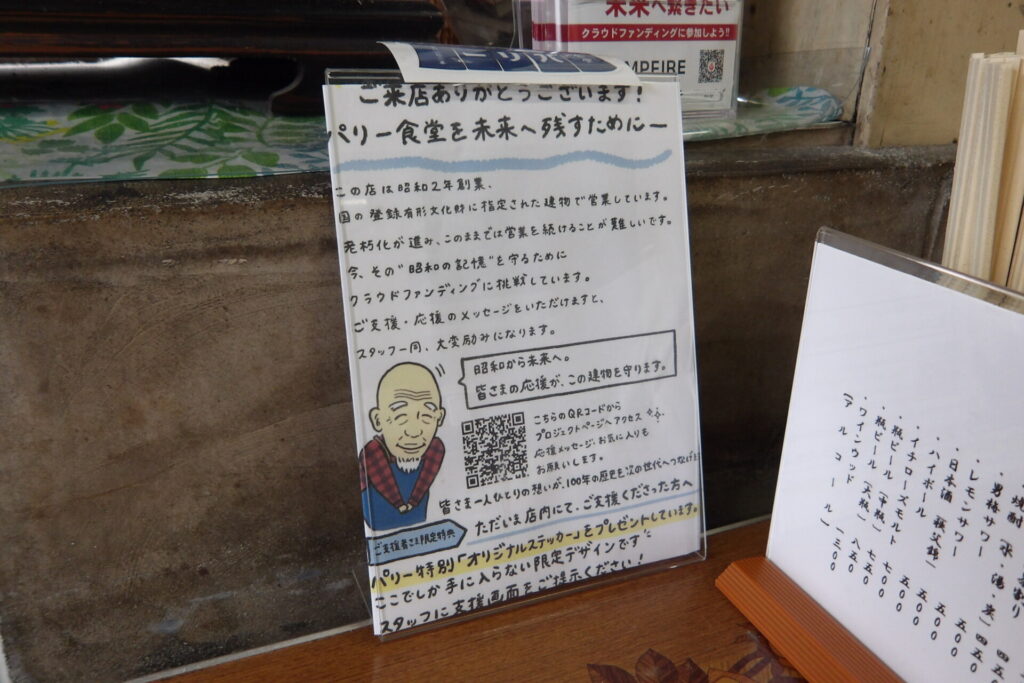 未来へ繋ぎたい
クラウドファンディングに参加しよう!!
MPFIRE
ご来店ありがとうございます!
パリー食堂を未来へ残すために―
この店は昭和2年創業、
国の登録有形文化財に指定された建物で営業しています。
老朽化が進み、このままでは営業を続けることが難しいです。
今、その"昭和の記憶"を守るために
クラウドファンディングに挑戦しています。
ご支援・応援のメッセージをいただけますと、
スタッフ一同、大変励みになります。
昭和から未来へ。
皆さまの応援が、この建物を守ります。
こちらのQRコードから
プロジェクトページへアクセス
応援メッセージ、お気に入りも
お願いします。
皆さま一人ひとりの想いが、100年の歴史を次の世代へつなげます
ご支援者さま限定特典
ただいま店内にて、ご支援くださった方へ
パリー特別「オリジナルステッカー」をプレゼントしています。
ここでしか手に入らない限定デザインです
スタッフに支援画面をご提示ください!
・男梅サワー 四五〇
・レモンサワー 四五〇
・日本酒「秩父錦」 五五〇
・ハイボール 五〇〇
・イチローズモルト 五五〇
・瓶ビール「中瓶」 七〇〇
・瓶ビール「大瓶」 八五〇
・ワインウッド 一三〇〇
「アルコール」